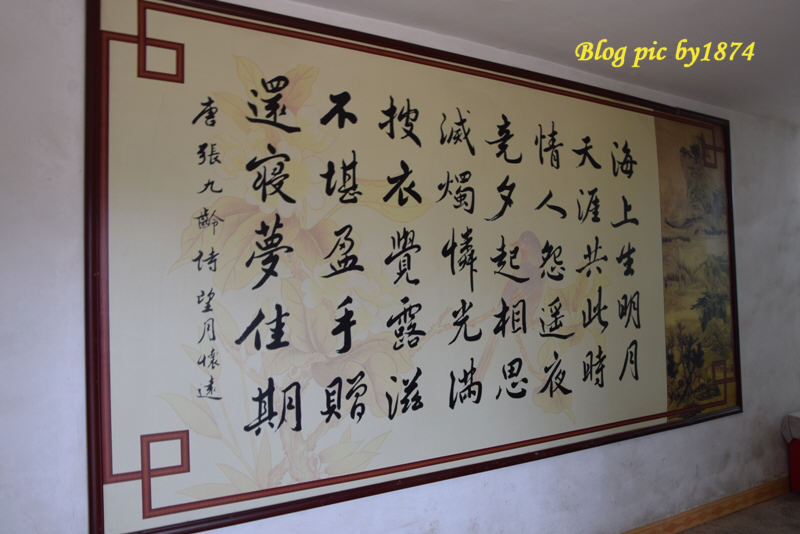 Blog pic by1874
海上生明月
天涯共此時
情人怨遥夜
竞夕起相思
滅燭憐光满
披衣覺露滋
不堪盈手贈
還寝夢佳期
唐張九齡詩望月懷遠